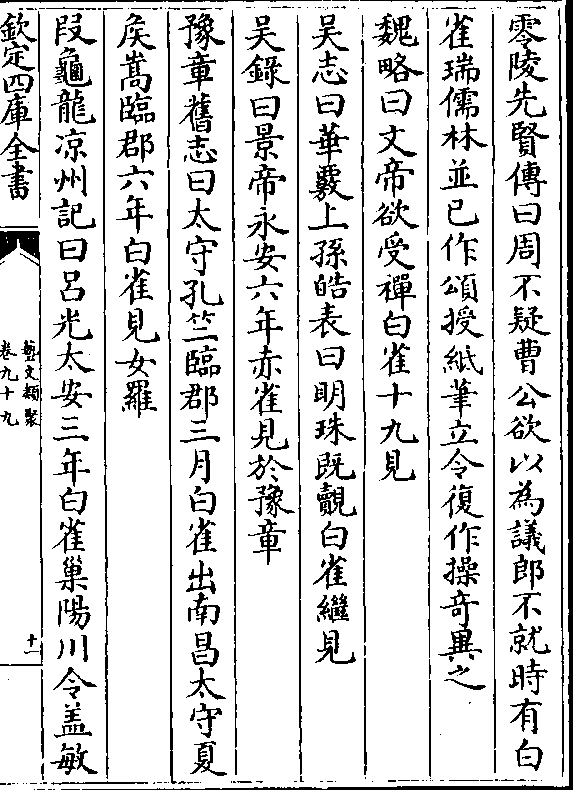 零陵先賢傳曰周不疑曹公欲以為議郎不就時有白
雀瑞儒林並已作頌授紙筆立令復作操奇異之
魏略曰文帝欲受禪白雀十九見
吴志曰華覈上孫皓表曰明珠既覿白雀繼見
吴錄曰景帝永安六年赤雀見於豫章
豫章舊志曰太守孔竺臨郡三月白雀出南昌太守夏
侯嵩臨郡六年白雀見女羅
段龜龍凉州記曰呂光太安三年白雀巢陽川令盖敏
欽定四庫全書
藝文類聚
卷九十九
十二